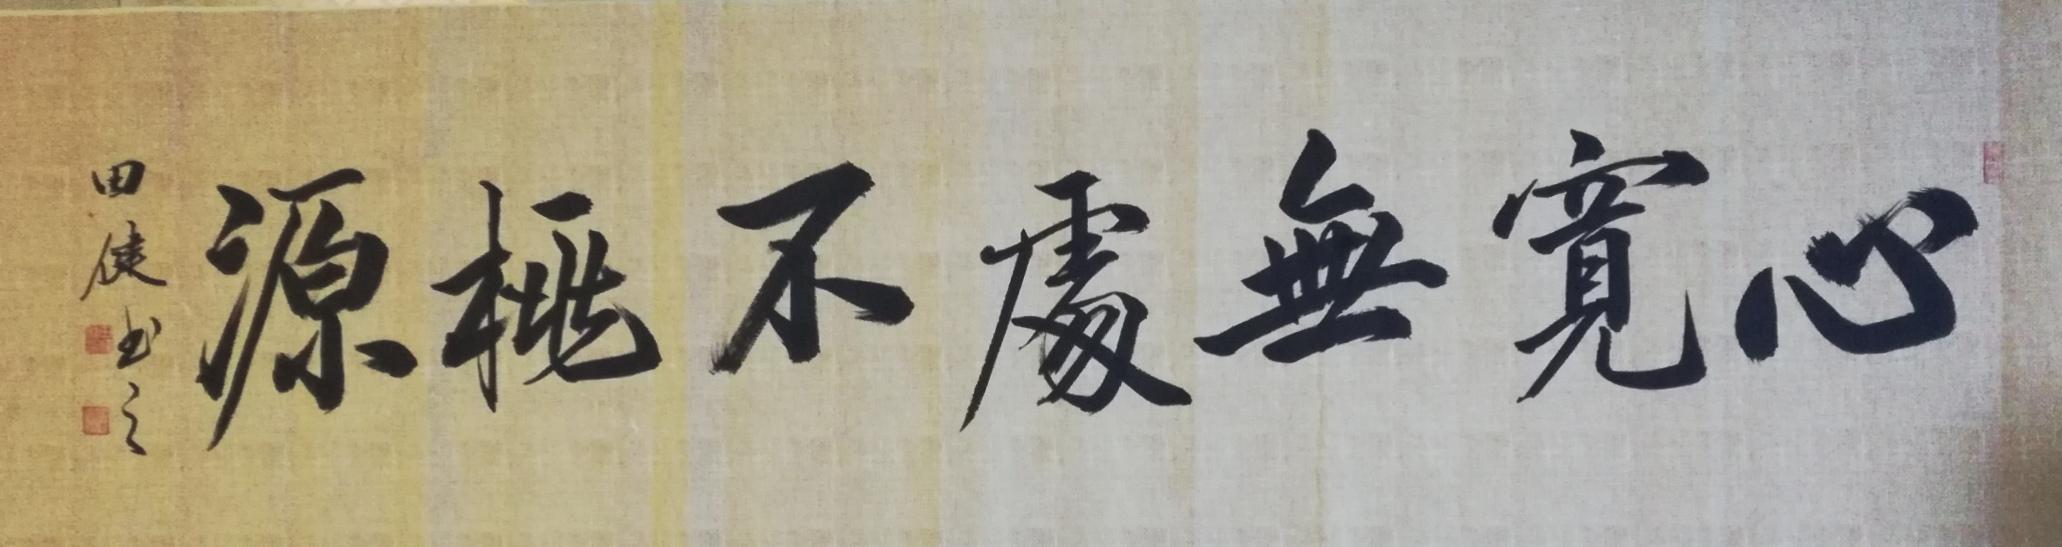 心寬無處不桃源
田健书之